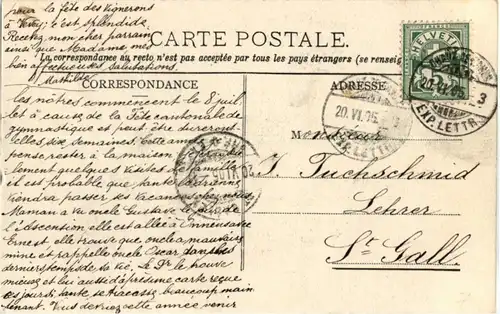 pour la fête des Vignerons
à Vevey; c'est splendide.
Recevez mon cher parrain
ainsi que Madame mes
bien affectueuses salutations.
Mathilde
CARTE POSTALE.
La correspondance au recto n'est pas acceptée par tous les pays étrangers (se renseig
CORRESPONDANCE
ADRESSE
les nôtres commencent le 8 juil
let à cause de la fête cantonale de
gymnastique et peut être dureront
elles six semaines. Cette année
pense rester à la maison
lement quelques visites
et il est probable que tante
viendra passer ses vacances chez nous
Maman a vu oncle Gustave le jour de
l'Ascension elle est allée à
Ernest elle trouve que oncle a mauvaise
mine et rappelle oncle Oscar dans les
derniers temps de sa vie. Le Dr le trouve
mieux et lui aussi d'après une carte reçue
ces jours-ci, tante se tracasse beaucoup main
tenant. Vous devriez cette année venir
Monsieur
J. Tuchschmid
Lehrer
St Gall.
HELVETIA
20.VI.05
EXP. LETTR.
20.VI.05
EXP. LETTR.